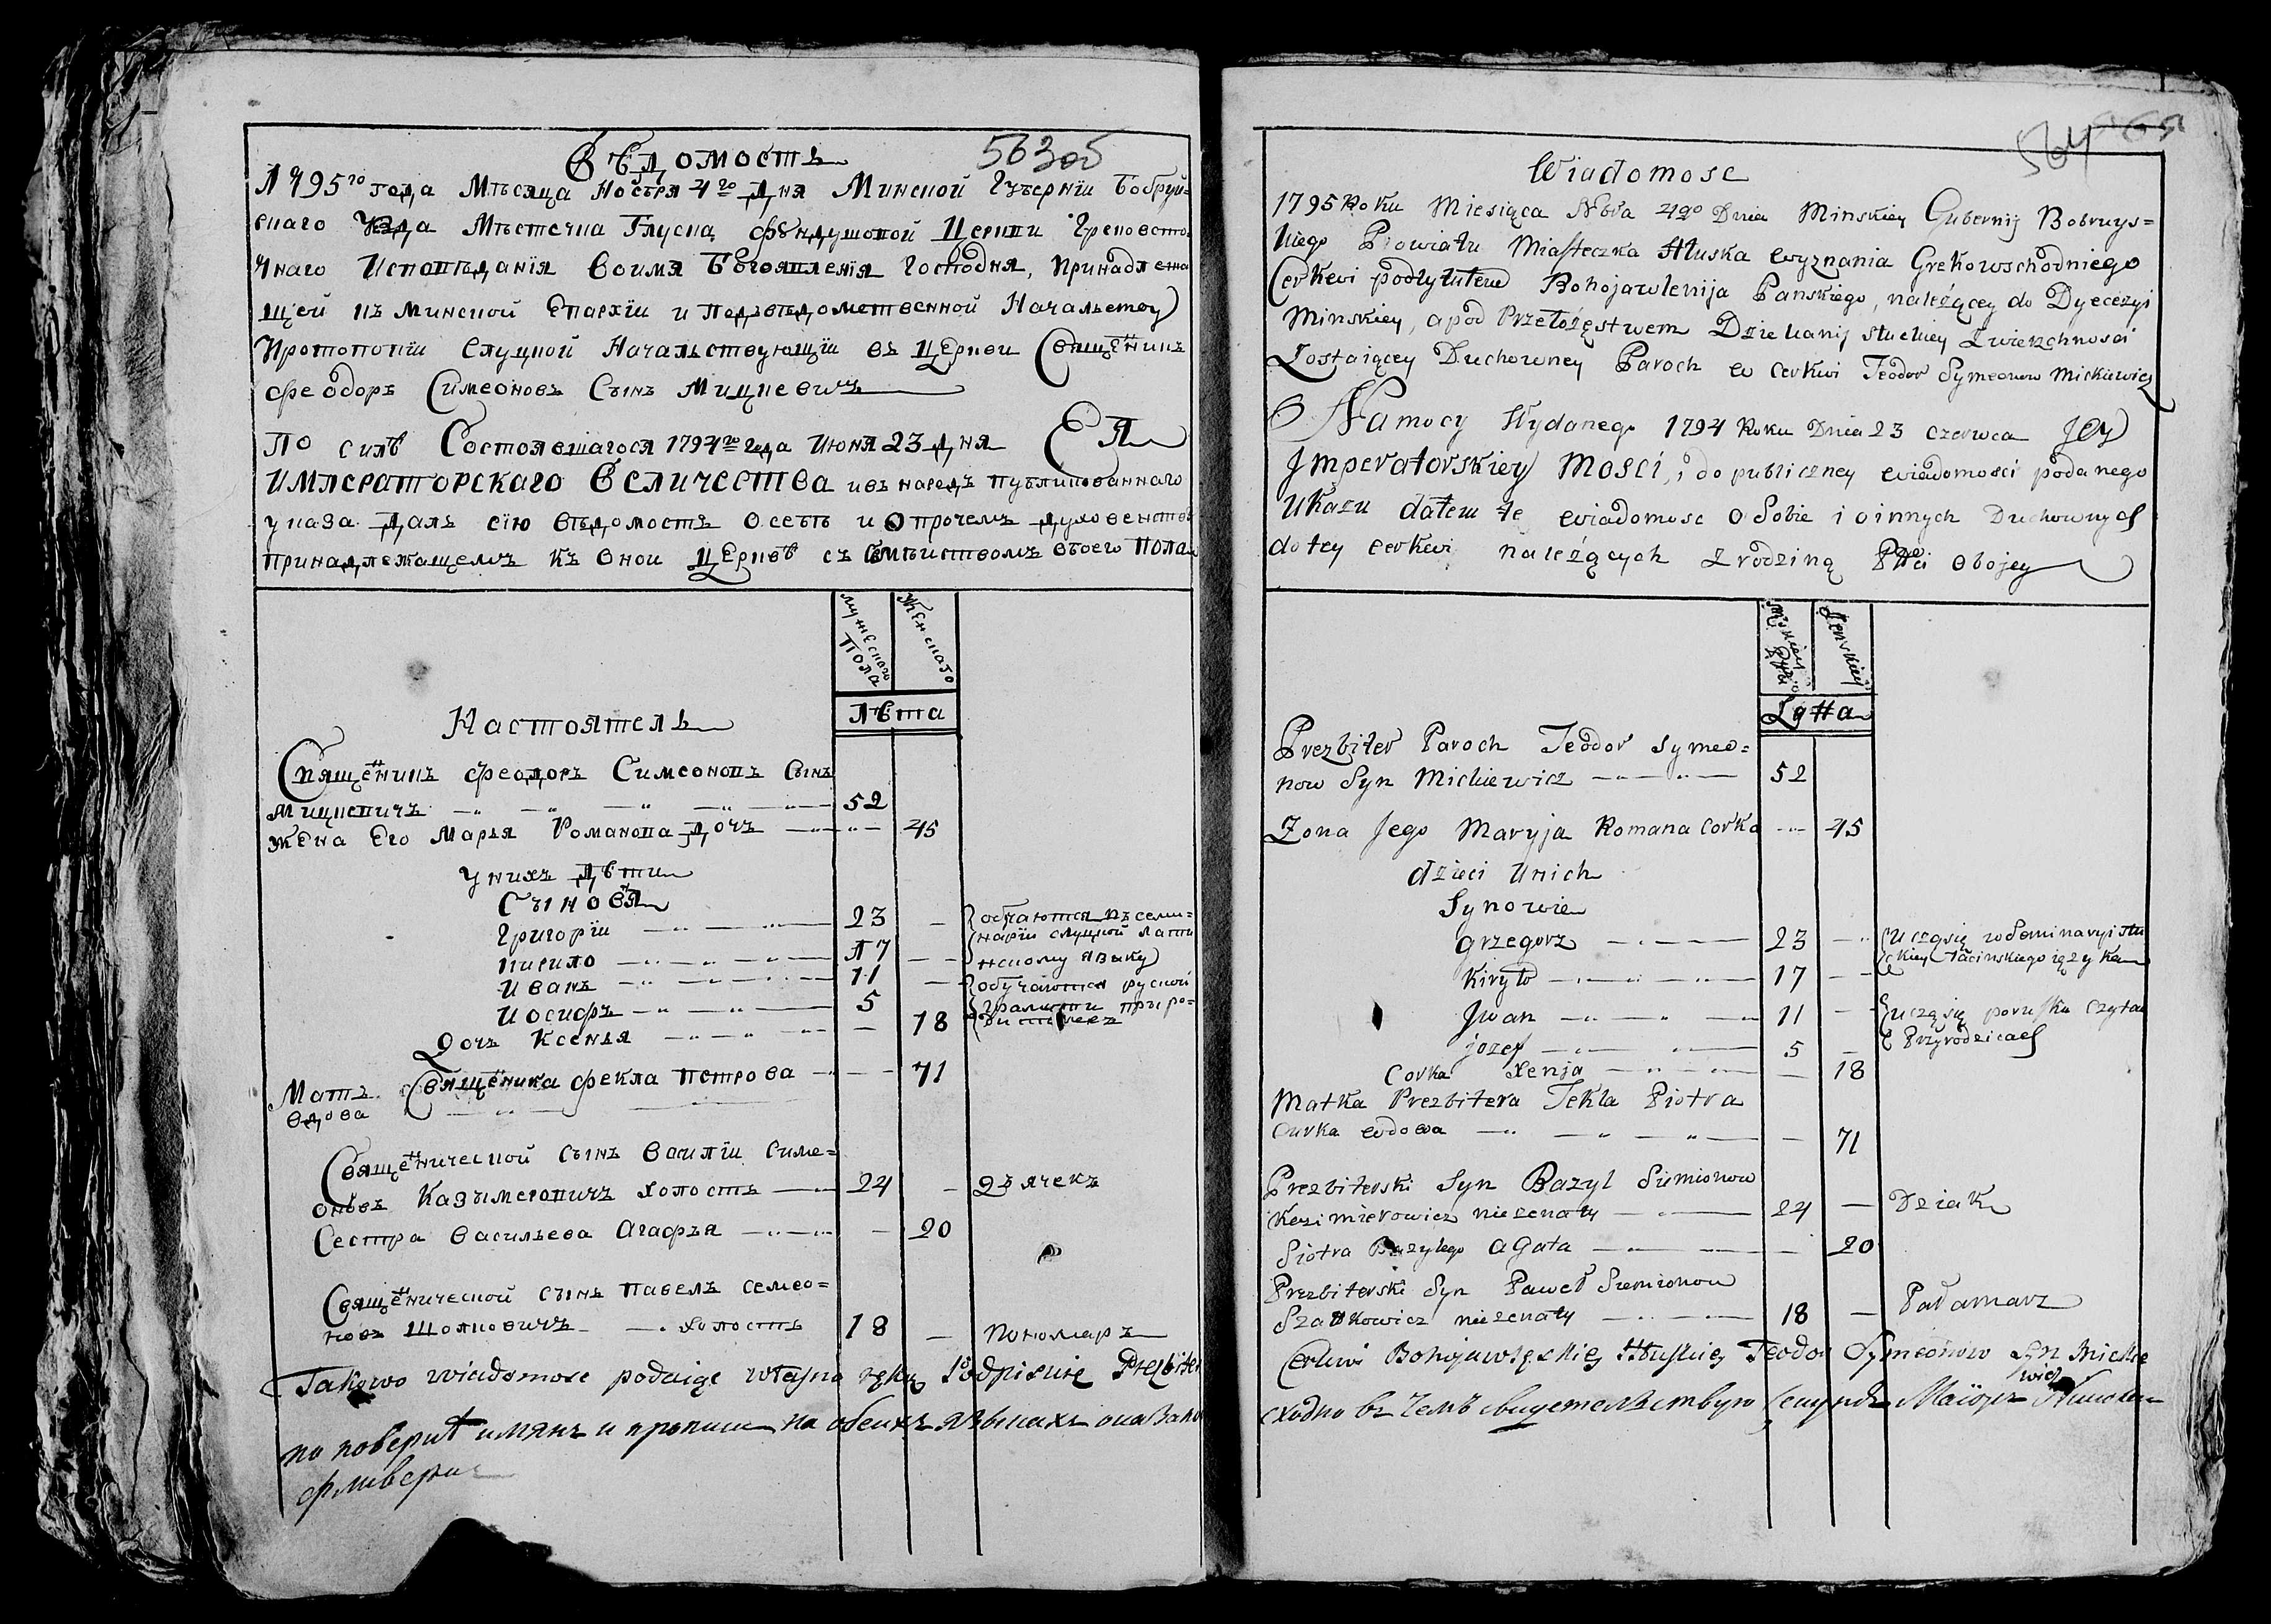 Вѣдомость
563об
1795го года Мѣсяца Ноебря 4го Дня Минской Губерніи Бобруй=
скаго Уезда Мѣстечка Глуска фундушовой Церкви Грековсто
чнаго Исповѣданія Воимя Богоявленія Господня, принадлежа
щей къ Минской Епархіи и Подвѣдомственной Начальству
Протопопіи Слуцкой Начальствующіи въ Церкви Свящѣникъ
Феодоръ Симеоновъ Сынъ Мицкевичъ
По силѣ Состоявшагося 1794го года Июня 23 Дня ЕЯ
ИМПЕРАТОРСКАГО ВЕЛИЧЕСТВА ивъ народъ публикованнаго
указа Далъ сію вѣдомость Осебѣ и Опрочемъ Духовенствѣ
принадлежащемъ къ Оной Церквѣ съ Семѣиствомъ Обоего Пола
мужескаго Пола
Женскаго
Лѣта
Настоятель
Свящѣникъ Феодоръ Симеоновъ Сынъ
Мицкевичъ 52
Жена Его Марья Романова Дочъ 45
у нихъ Дѣти
Сыновя
Григоріи 23 обучаются въ семи=
наріи слуцкой Лати
Кирило 17 нскому языку
Иванъ 11 обучаются руской
Иосифъ 5 Грамоти при ро=
Дочъ Ксенья 18 дителехъ
Мать Свящѣника Фекла Петрова 71
Вдова
Свящѣнической сынъ Василіи Симе=
оновъ Казымеровичъ холостъ 24 Дъячекъ
Сестра Васильева Агафъя 20
Свящѣнической сынъ Павелъ Семео=
новъ Шолковичъ холостъ 18 Пономаръ
Takowo wiadomosc podaige własno ręku Podpisuię Prezbiter
по поверкѣ имянъ и прописи на обеихъ языкахъ оказано
564
Wiadomosc
1795 Roku Miesiąca Nobra 4go Dnia Minskiey Gubernij Bobruys=
kiego Powiatu Miasteczka Hłuska wyznania Grekowschodniego
Cerkwi podtytułem Bohojawlenija Panskiego, należącey do Dyecezyi
Minskiey, apod Przełożęstwem Dziekanij słuckiey Zwierzchnosci
Zostaiącey Duchowney Paroch w cerkwi Teodor Symeonow Mickiewicz
Namocy Wydanego 1794 Roku Dnia 23 czerwca Jey
Jmperatorskiey Mosci, i do publiczney wiadomosci podanego
Ukazu dałem te wiadomosc o Sobie i o innych Duchownych
do tey cerkwi należących z rodziną Płci obojey
Męskiey Płci
Zenskiey
Lątta
Prezbiter Paroch Teodor Symeo=
now Syn Mickiewicz 52
Zona Jego Maryja Romana corka 45
dzieci Unich
Synowie
Grzegorz 23 Ucząsię w Seminaryi słu
ckiey łacinskiego ięzyka
Kiryło 17
Jwan 11 ucząsię porusku czytac
jozef 5 Przyrodzicach
Corka Xenja 18
Matka Prezbitera Tekla Piotra
Curka wdowa 71
Prezbiterski Syn Bazyl Simionow
Kazimierowicz nieżenaty 24 Dziak
Siotra Bazylego Agata 20
Prezbiterski Syn Paweł Siemionow
Szołkowicz nieżenaty 18 Pałamarz
Cerkwi Bohojawlęskiey Hłuskiey Teodor Symeonow Syn Mickie
wicz
сходно въ чемъ свидетельствую Секундъ Маіоръ